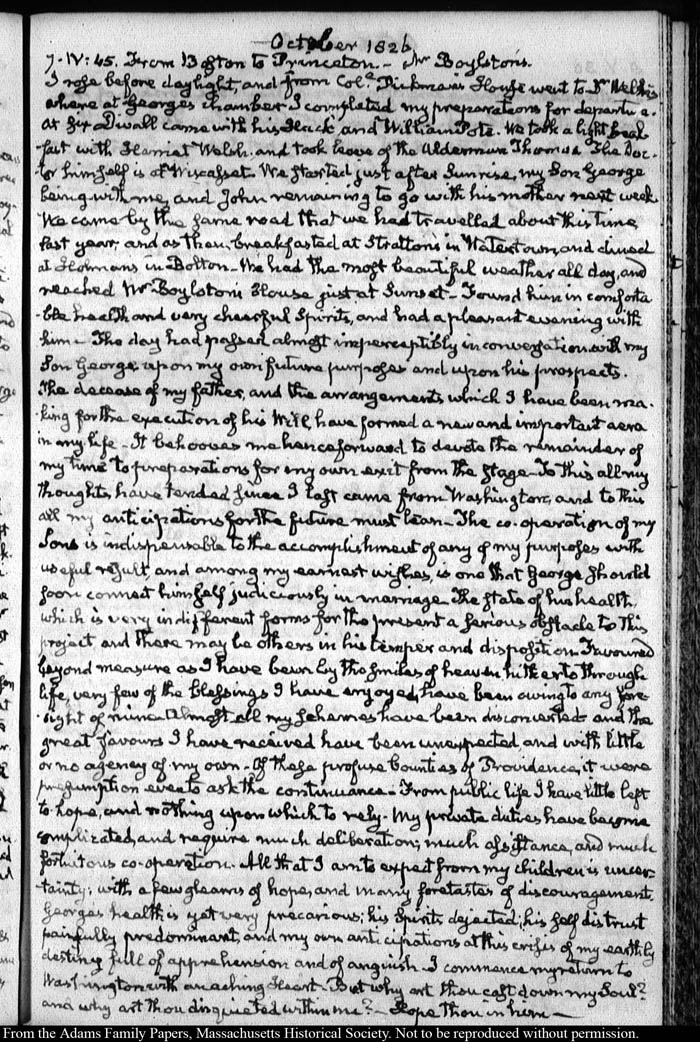 October 1826
7. IV:45. From Boston to Princeton.- Mr Boylston's.
I rose before daylight, and from Col.l Dickman's House went to Dr Welsh's
where at George's chamber I completed my preparations for departure.
At six Divall came with his Hack, and William Pote. We took a light break
fast with Harriet Welsh. and took leave of the Alderman Thomas. The Doc-
tor himself is at Wiscasset. We started just after Sunrise, my Son George
being with me, and John remaining to go with his mother next week
We came by the same road that we had travelled about this time
last year, and as then, breakfasted at Stratton's in Watertown, and dined
at Holman's in Bolton- We had the most beautiful weather all day, and
reached Mr Boylston's House just at Sunset- Found him in comforta
-ble health and very chearful Spirits, and had a pleasant evening with
him- The day had passed almost imperceptibly in conversation with my
Son George, upon my own future purposes and upon his prospects.
The decease of my father, and the arrangements which I have been ma-
king for the execution of his Will, have formed a new and important aera
in my life- It behooves me henceforward to devote the remainder of
my time to preparations for my own exit from the stage- To this all my
thoughts have tended since I last came from Washington, and to this
all my anticipations for the future must lean- The co-operation of my
Sons is indispensable to the accomplishment of any of my purposes with
useful result, and among my earnest wishes, is one that George should
soon connect himself judiciously in marriage. The state of his health,
which is very indifferent forms for the present a serious obstacle to this
project, and there may be others in his temper and disposition. Favoured
beyond measure as I have been by the smiles of heaven hitherto through
life, very few of the blessings I have enjoyed, have been owing to any fore
-sight of mine. Almost all my schemes have been disconcerted- and the
great favours I have received have been unexpected and with little
or no agency of my own- Of these profuse bounties of Providence, it were
presumption even to ask the continuance- From public life I have little left
to hope, and nothing upon which to rely- My private duties have become
complicated, and require much deliberation, much assistance, and much
fortuitous co-operation. All that I am to expect from my children is uncer-
tainty; with a few gleams of hope, and many foretastes of discouragement.
George's health is yet very precarious; his Spirits dejected; his self distrust
painfully predominant, and my own anticipations at this crisis of my earthly
destiny full of apprehension and of anguish- I commence my return to
Washington with an aching Heart- But why art thou cast down my Soul?
and why art thou disquieted within me?- Hope thou in him-
From the Adams Family Papers, Massachusetts Historical Society. Not to be reproduced without permission.